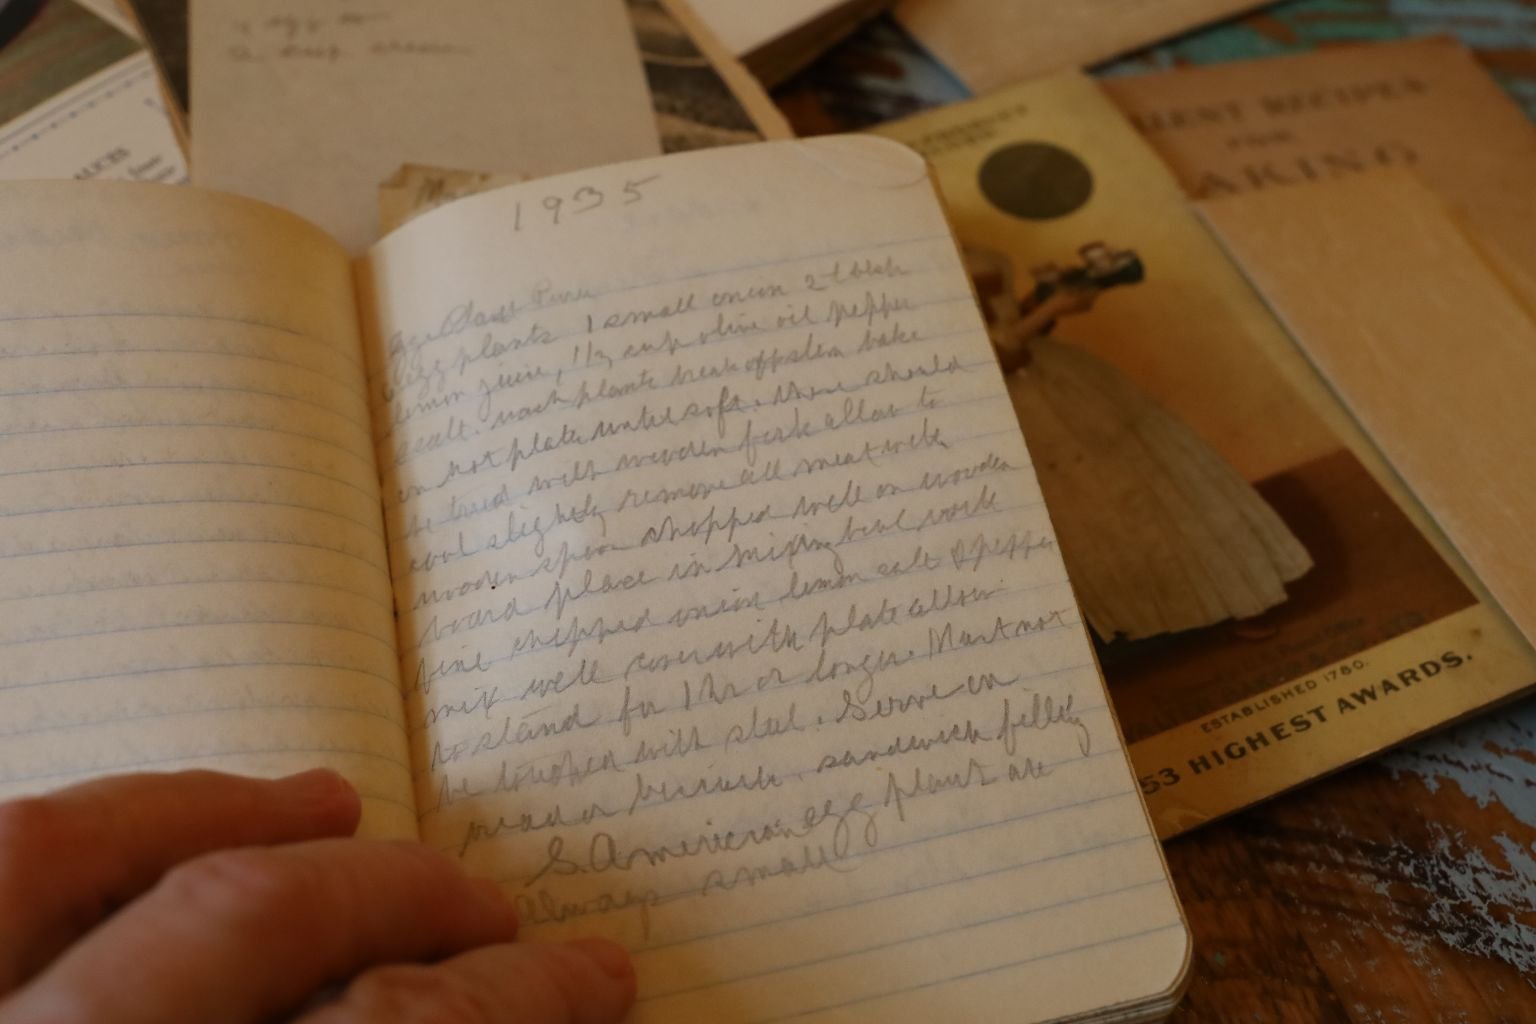 1935
Egg Plant Puree
egg plants 1 small onion 2
lemon juice, 1/2 cup olive oil pepper
salt. wash plants break off stem bake
on hot plate until soft. these should
be tried with wooden fork allow to
cool slightly remove all meat with
wooden spoon chopped well on wooden
board place in mixing bowl work
fine chopped onion lemon salt & pepper
mix well cover with plate allow
to stand for 1 hr or longer. Must not
be touched with steel. Serve on
bread or sandwich filling
S. American egg plant are
always small
ESTABLISHED 1780.
53 HIGHEST AWARDS.
BEST RECIPES
FOR
AKING